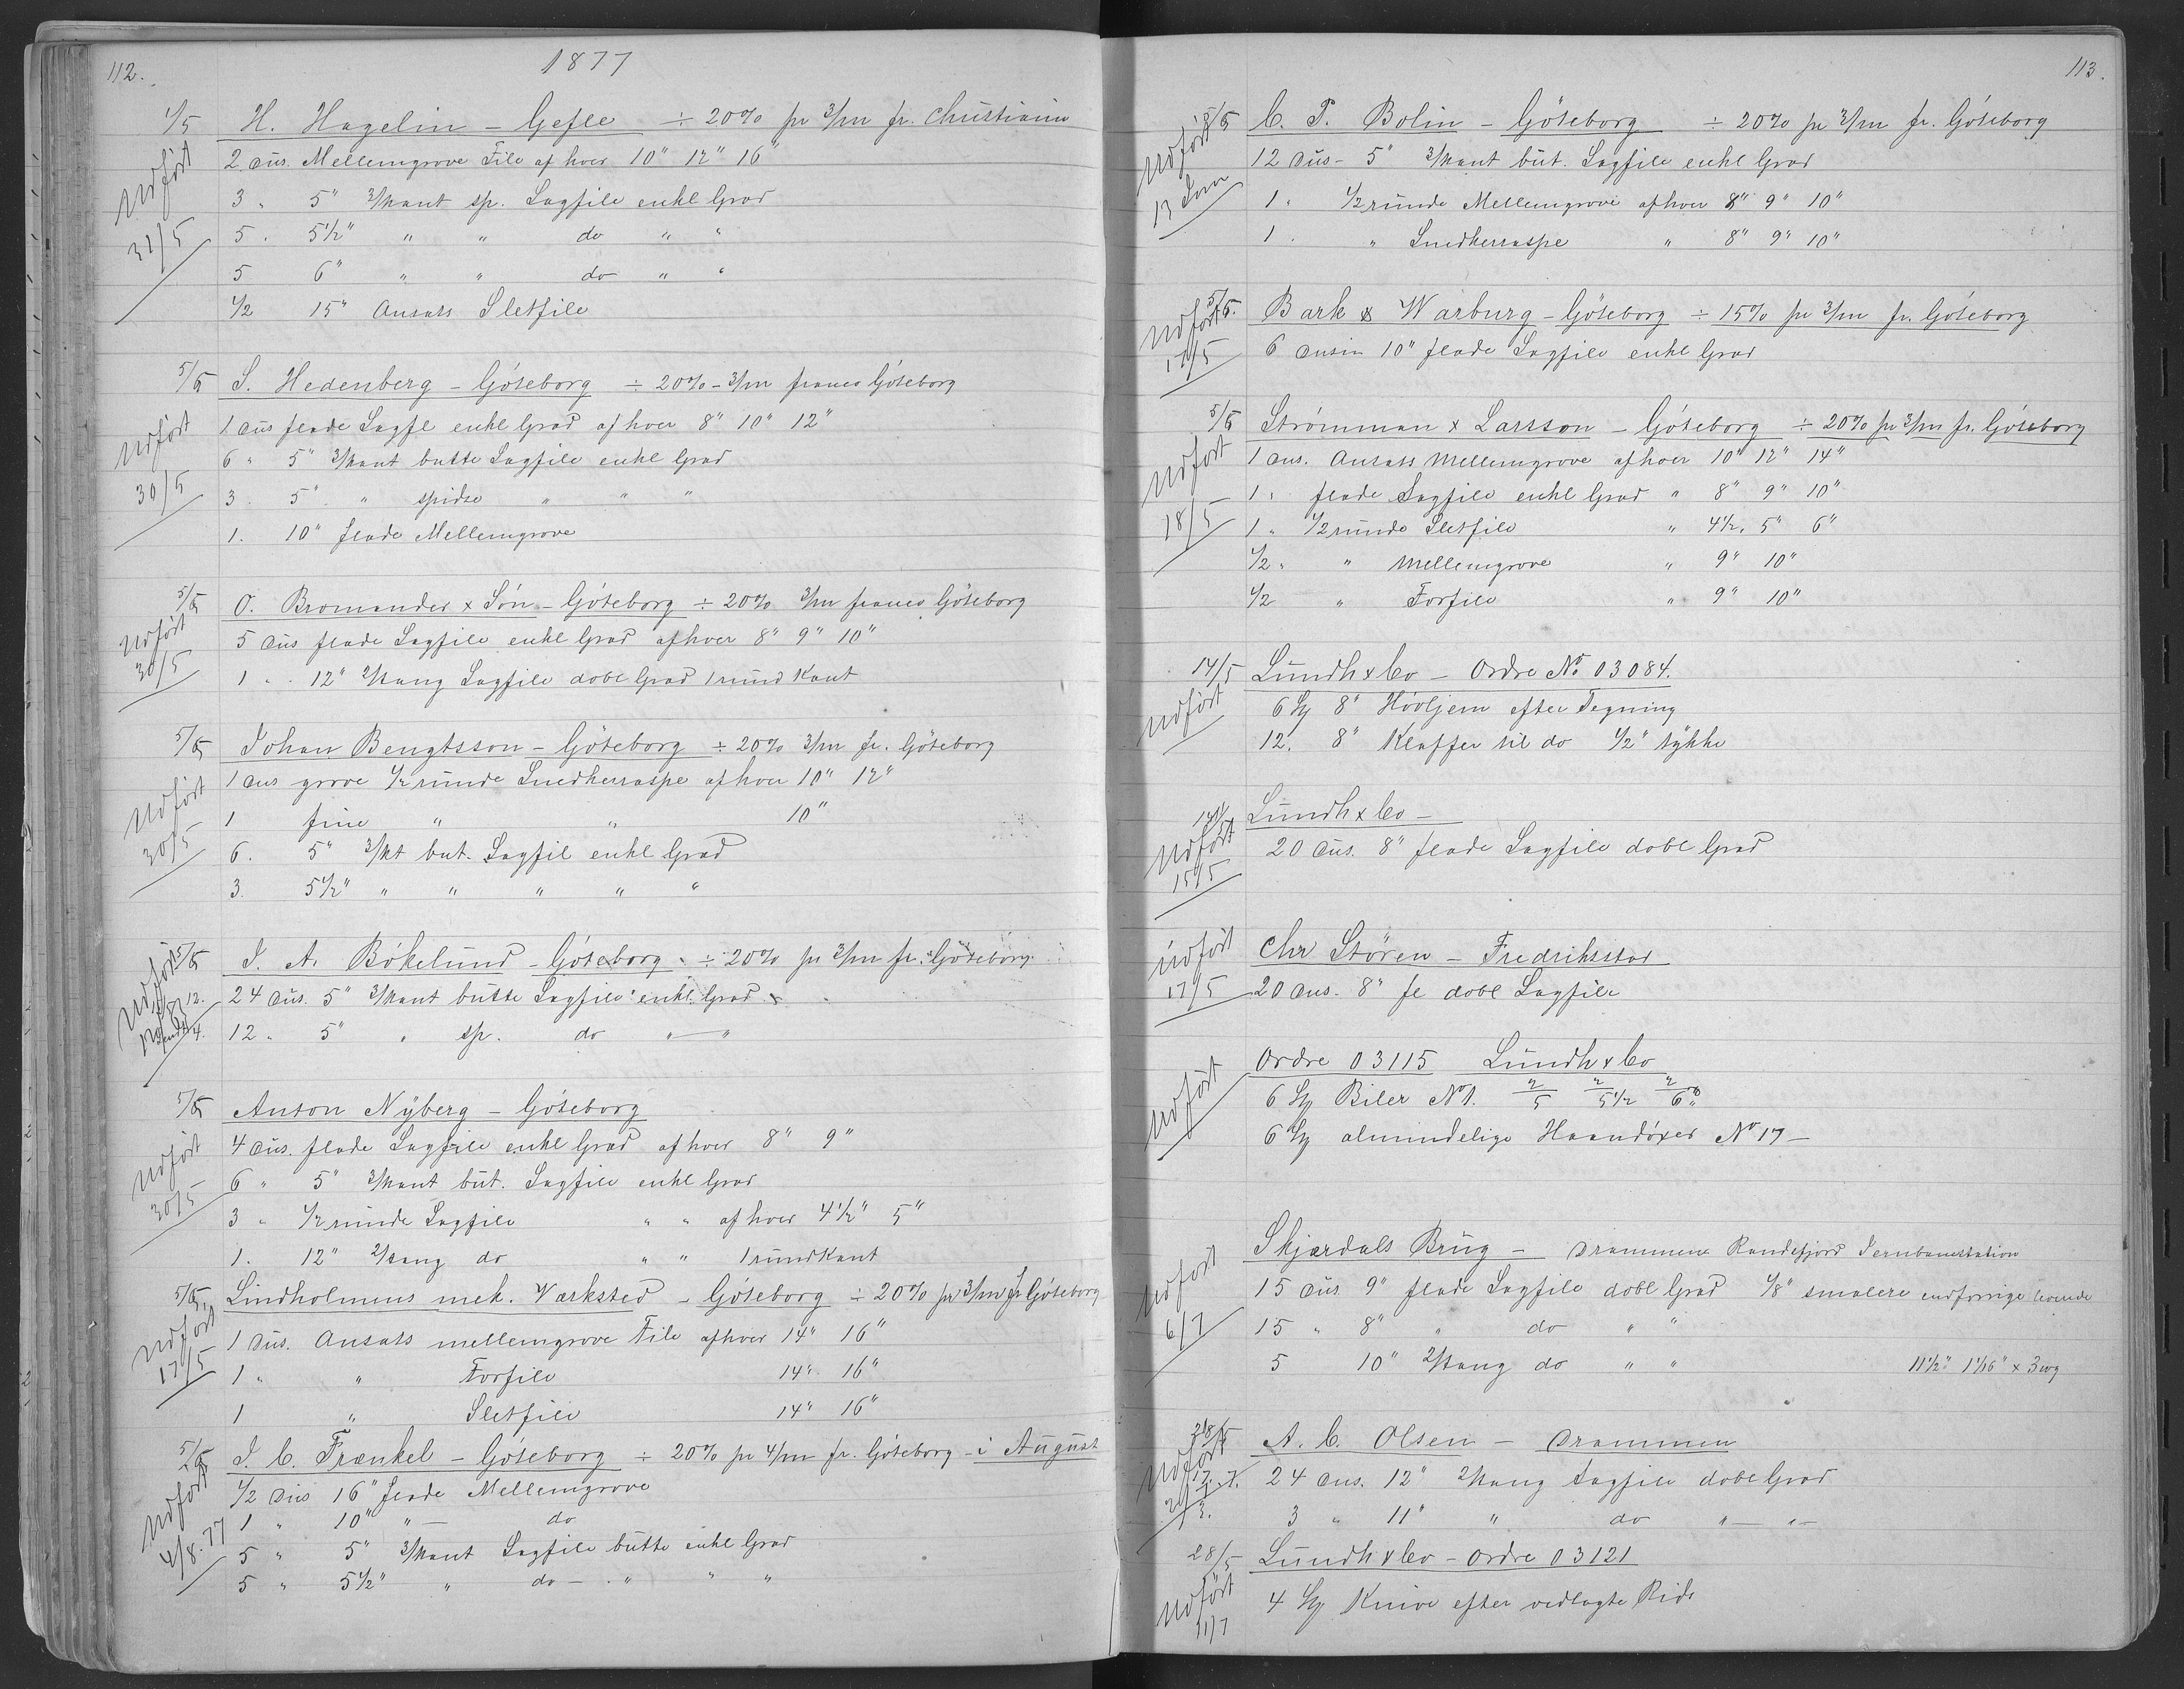 112.
1877
4/5 H. Hagelin – Gefle ÷ 20% pr 3/m fr. Christiania
2 Dus. Mellemgrove File af hver 10" 12" 16"
Udført 3 " 5" 3/kant sp. Sagfile enkl Grad
31/5 5 " 5½" " " do " "
5 6" " " do " "
½ 15" Ansats Sletfile
5/5 S. Hedenberg – Göteborg ÷ 20% – 3/m franco Göteborg
1 Dus flade Sagfl enkl Grad af hver 8" 10" 12"
Udført 6 " 5" 3/kant butte Sagfile enkl Grad
30/5 3 . 5" " spidse " " "
1. 10" flade Mellemgrove
5/5 O. Bromander & Sön – Göteborg ÷ 20% 3/m franco Göteborg
Udført 5 Dus flade Sagfile enkl Grad af hver 8" 9" 10"
30/5 1 " . 12" 2/kang Sagfile dobl Grad 1 rund Kant
5/5 Johan Bengtsson – Göteborg ÷ 20% 3/m fr. Göteborg
1 Dus grove ½ runde Snedkerraspe af hver 10" 12"
Udført 1 fine " " 10"
30/5 6. 5" 3/kt but. Sagfil enkl Grad
3. 5½" " " " " "
5/5 J. A. Bökelund – Göteborg ÷ 20% pr 3/m fr. Göteborg
Udført 24 Dus. 5" 3/kant butte Sagfile enkl Grad
12 " 5" " sp. do " — "
5/5 Anton Nyberg – Göteborg
4 Dus. flade Sagfile enkl Grad af hver 8" 9"
Udført 6 " 5" 3/kant but. Sagfile enkl Grad
30/5 3 " ½ runde Sagfile " " af hver 4½" 5"
1. 12" 2/kang do " " 1 rundKant
5/5 Lindholmens mek. Værksted – Göteborg ÷ 20% pr 3/m fr Göteborg
Udført 1 Dus. Ansats mellemgrove File af hver 14" 16"
17/5 1 " " Forfile 14" 16"
1 " Sletfile 14" 16"
5/5 J. C. Frænkel – Göteborg ÷ 20% pr 4/m fr. Göteborg – i August
Udført ½ Dus 16" flade Mellemgrove
4/8.77 1 " 10" " — do
5 " 5" 3/kant Sagfile butte enkl Grad
5 " 5½" " do — . " " "
113.
5/5 C. P. Bolin – Göteborg ÷ 20% pr 3/m fr. Göteborg
Udført 12 Dus – 5" 3/kant but. Sagfile enkl Grad
1 " ½ runde Mellemgrove af hver 8" 9" 10"
1 . " Snedkerraspe " 8" 9" 10"
5/5. Bark & Warburg – Göteborg ÷ 15% pr 3/m fr. Göteborg
Udført 17/5 6 Dusin 10" flade Sagfile enkl Grad
5/5 Strömman & Larsson – Göteborg ÷ 20% pr 3/m fr. Göteborg
Udført 1 Dus. Ansats Mellemgrove af hver 10" 12" 14"
18/5 1 " flade Sagfile enkl Grad " 8" 9" 10"
1 " ½ runde Sletfile " 4½" 5" 6"
½ " " Mellemgrove " 9" 10"
½ " Forfile " 9" 10"
14/5 Lundh & Co – Ordre No 03084.
Udført 6 St 8" Hövljern efter Tegning
12. 8" Klaffer til do ½" tykke
14/5 Lundh & Co –
Udført 15/5 20 Dus. 8" flade Sagfile dobl Grad
Udført Chr Stören – Fredriksstad
17/5 20 Dus. 8" fl dobl Sagfile
Ordre 03115 Lundh & Co
Udført 6 St Biler No 1. 2/5 2/5½ 2/6"
6 St almindelige Haandöxer No 17 –
Skjærdals Brug – Drammen Randsfjord Jernbanestation
Udført 15 Dus 9" flade Sagfile dobl Grad 1/8" smalere end forrige levende
6/7 15 " 8" " do " "
5 10" 2/kang do " " 11½" 1 1/16" x 3 wg
28/5 A. C. Olsen – Drammen
Udført 24 Dus. 12" 2/kang Sagfile dobl Grad
3 " 11" " do " — " —
28/5 Lundh & Co – Ordre 03121
Udført 4 St Knive efter vedlagte Rids
11/7